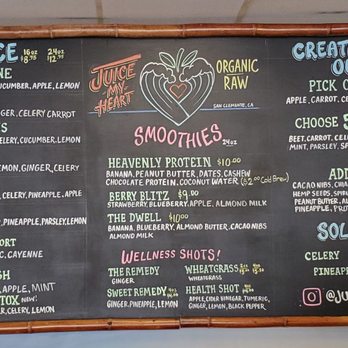 CE 16oz $8.95 24oz $12.95
NE
CUMBER, APPLE, LEMON
GINGER, CELERY CARROT
S
ELERY, CUCUMBER, LEMON
LEMON, GINGER, CELERY
CELERY, PINEAPPLE, APPLE
PINEAPPLE, PARSLEY, LEMON
ORT
C, CAYENNE
SH
APPLE, MINT
TOX NEW!
CELERY, LEMON
JUICE
MY
HEART
ORGANIC
RAW
SAN CLEMENTE, CA
SMOOTHIES 24oz
HEAVENLY PROTEIN $10.00
BANANA, PEANUT BUTTER, DATES, CASHEW
CHOCOLATE PROTEIN, COCONUT WATER ($2.00 Cold Brew)
BERRY BLITZ $9.00
STRAWBERRY, BLUEBERRY, APPLE, ALMOND MILK
THE DWELL $10.00
BANANA, BLUEBERRY, ALMOND BUTTER, CACAO NIBS
ALMOND MILK
WELLNESS SHOTS!
THE REMEDY
GINGER
SWEET REMEDY
GINGER, PINEAPPLE, LEMON
WHEATGRASS
WHEATGRASS
HEALTH SHOT
APPLE CIDER VINEGAR, TUMERIC,
GINGER, LEMON, BLACK PEPPER
CREAT
O
PICK O
APPLE, CARROT, C
CHOOSE
BEET, CARROT, CELERY
MINT, PARSLEY, SP
ADD
CACAO NIBS, CHIA
HEMP SEEDS, SPIR
PEANUT BUTTER, AL
PINEAPPLE,
SOL
CELERY
PINEAPP
@JU